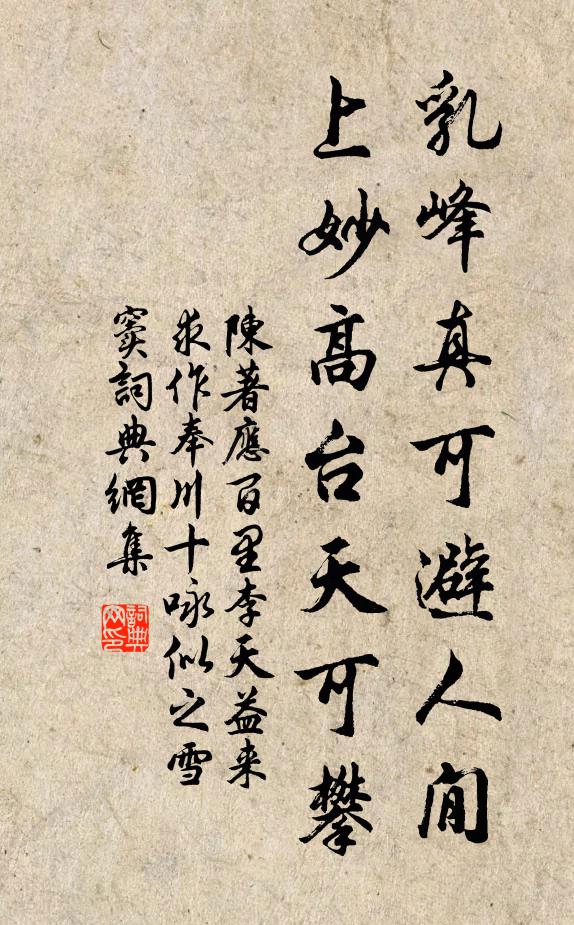 乳峰真可避人間
上妙高台天可攀
陳著應百里李天益来
求作奉川十咏似之雪
竇詞典網集
詞典网印